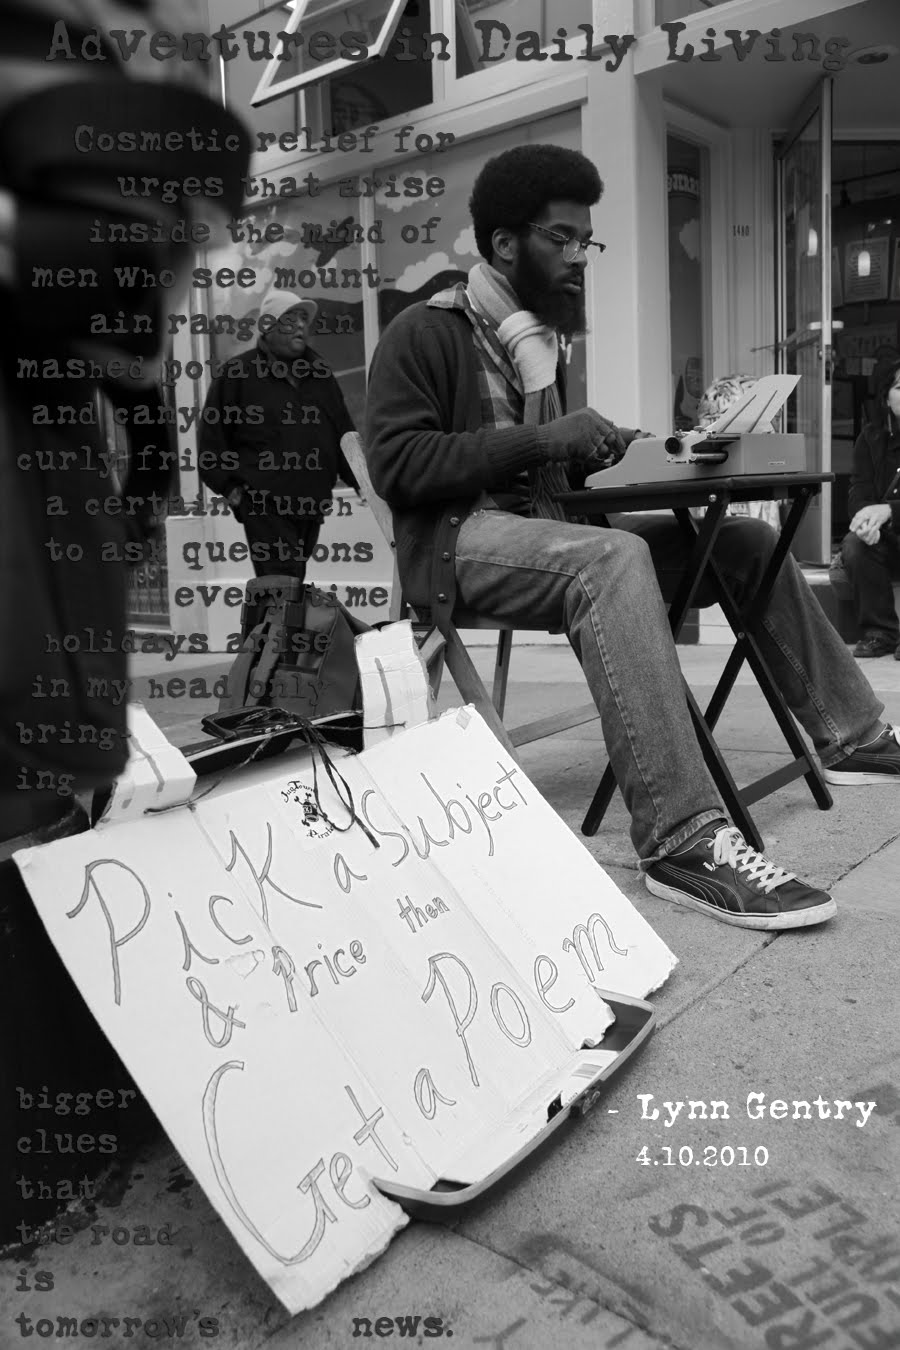 Adventures in Daily Living
Cosmetic relief for
urges that arise
inside the mind of
men Who see mount-
ain ranges in
mashed potatoes
and canyons in
curly fries and
a certain Hunch
to ask questions
every time
holidays arise
in my head only
bring-
ing
1480
Pick a Subject
& Price then
Get a Poem
bigger
clues
that
the road
is
tomorrow's news.
- Lynn Gentry
4.10.2010